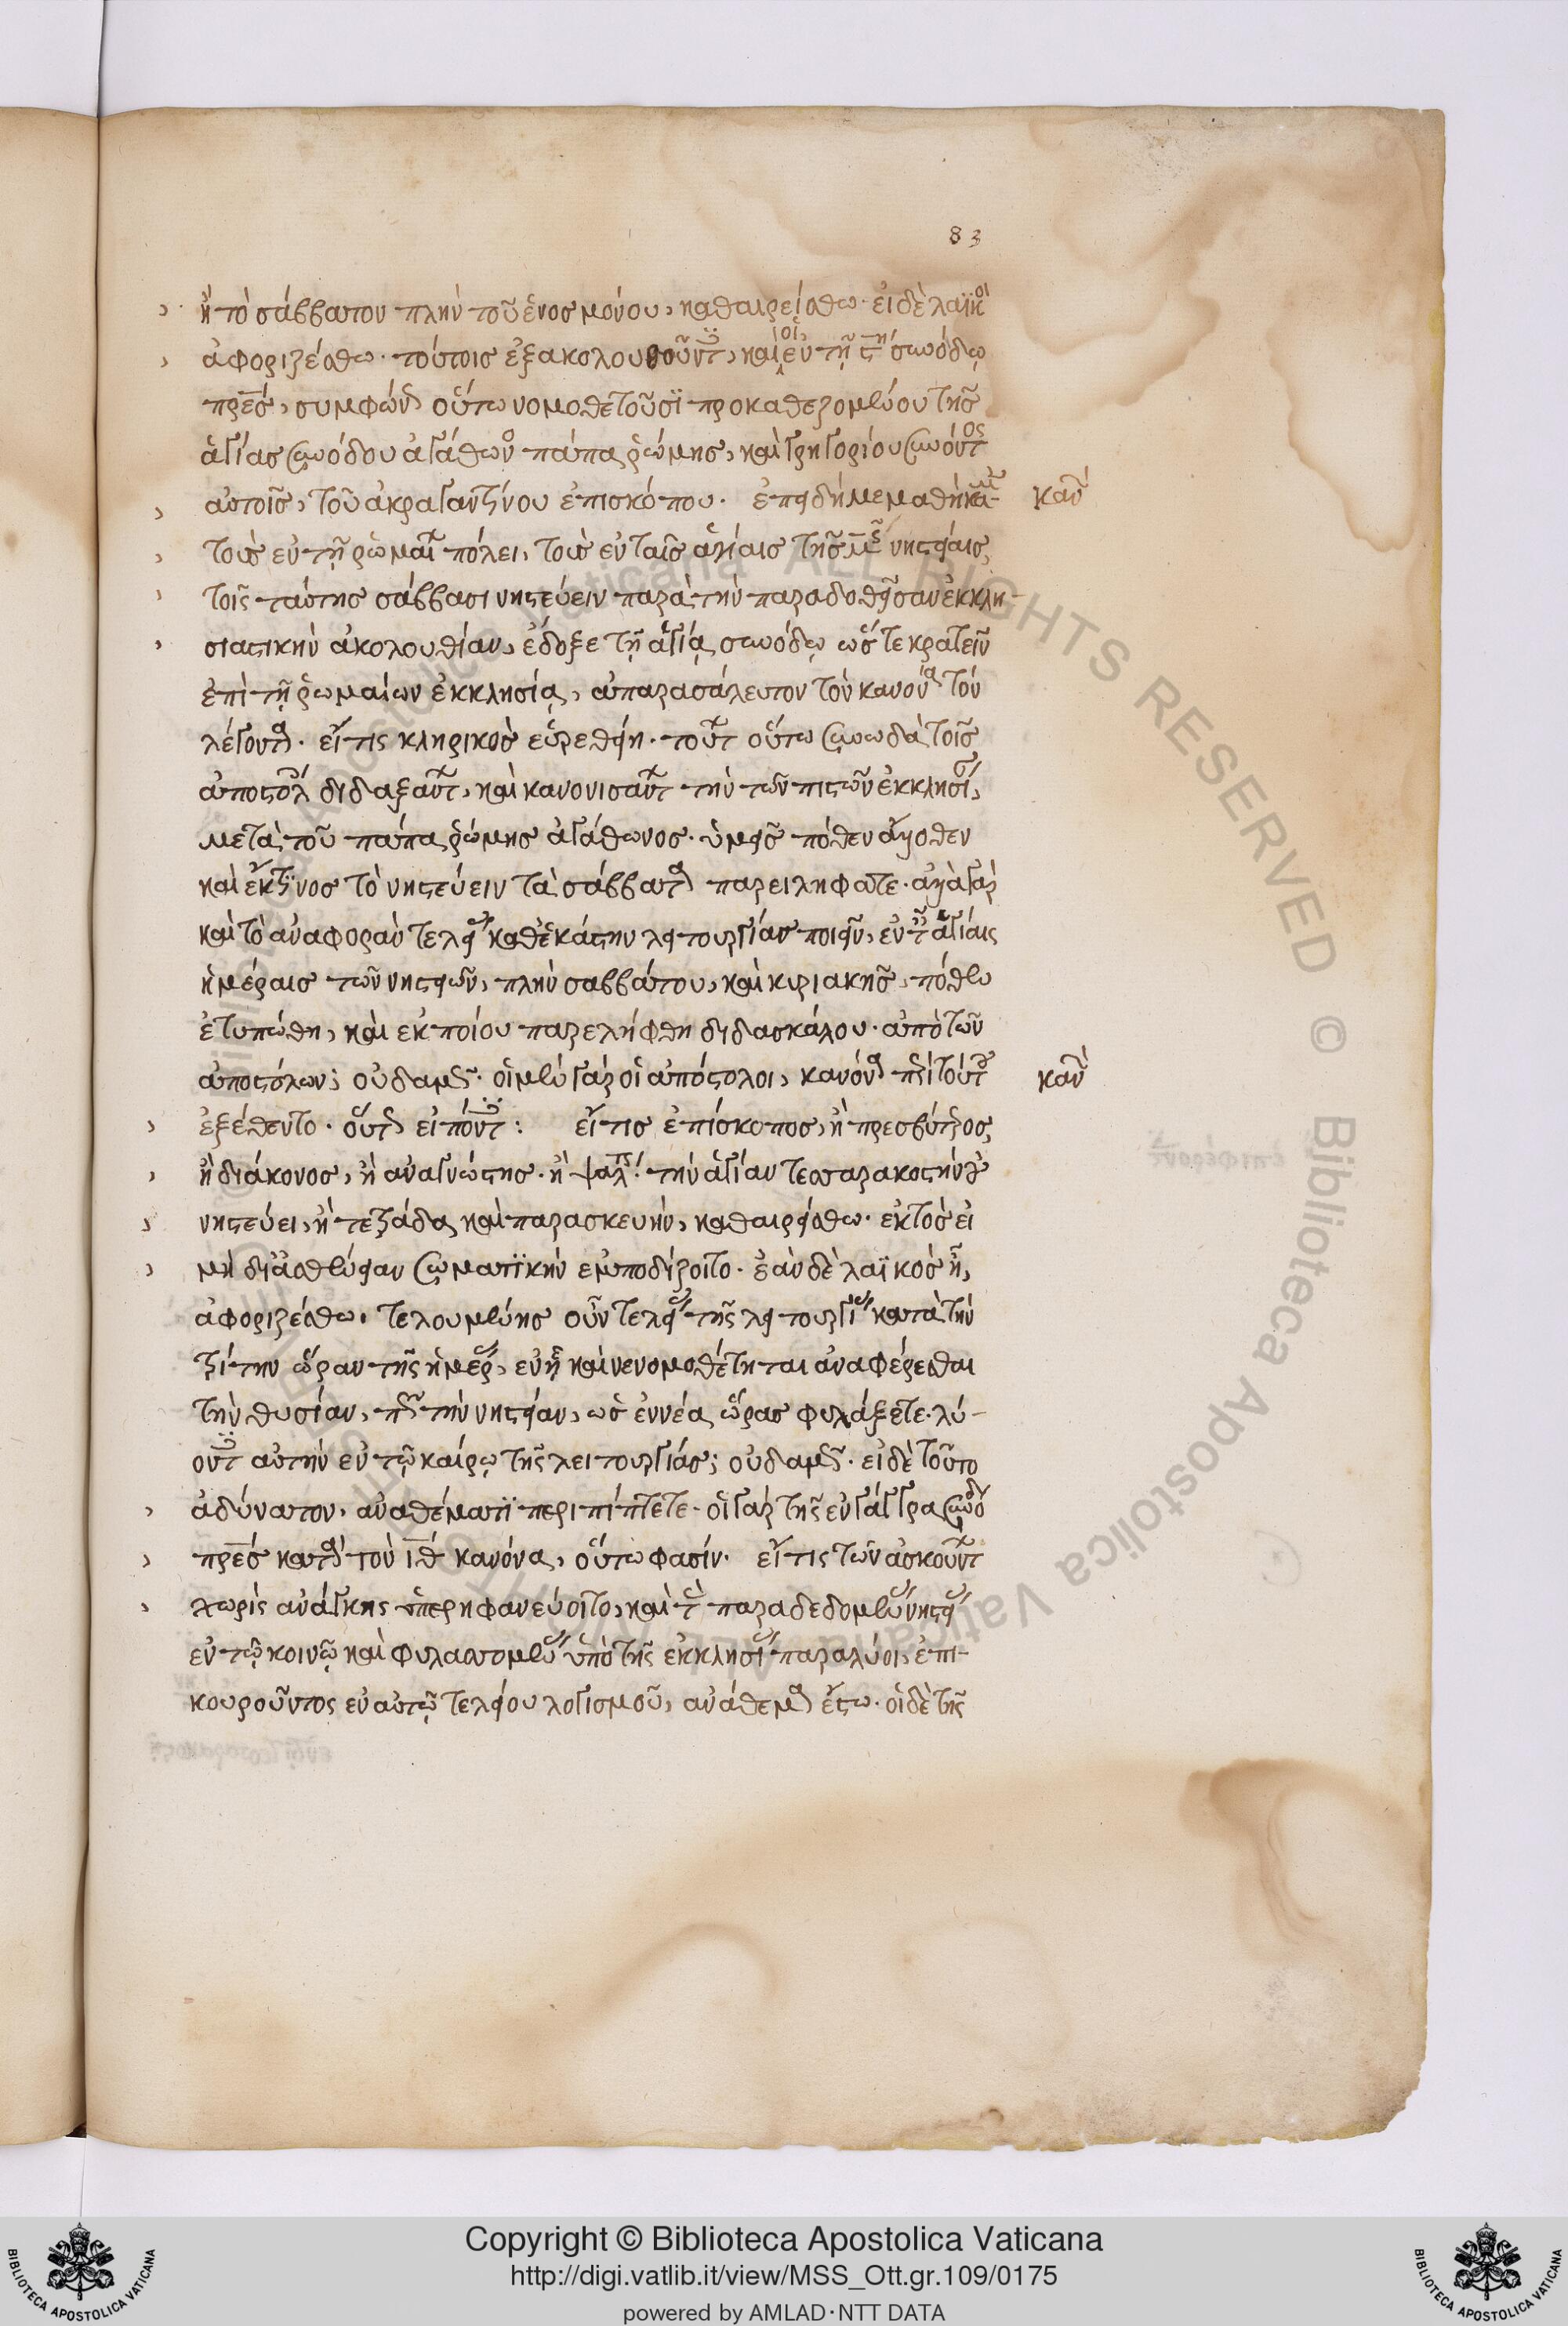 83
ἢ τὸ σάββατον πλὴν τοῦ ἑνὸσ μόνου, καθαιρείσθω· εἰ δὲ λαϊκοὶ
ἀφοριζέσθω· τούτοισ ἐξακολουθοῦντ, καὶ οἱ ἐν τῇ ϛτῃ συνόδῳ
πρεσ, συμφών οὕτω νομοθετοῦσϊ προκαθεζομένου τῆσ
ἁγίασ συνόδου ἀγάθων πάπα ῥώμησ, καὶ γρηγορίου συνόντος
αὐτοῖσ, τοῦ ἀκραγαντίνου ἐπισκόπου· ἐπειδὴ μεμαθήκαμ καν
τοὺσ ἐν τῇ ῥωμαί πόλει, τοὺσ ἐν ταῖσ ἁγίαισ τῆσ μ νηστείαισ
τοῖσ ταύτησ σάββασι νηστεύειν παρὰ τὴν παραδοθεῖσαν ἐκκλη-
σιαστικὴν ἀκολουθίαν, ἔδοξε τῇ ἁγίᾳ συνόδῳ ὥστε κρατεῖν
ἐπὶ τῇ ῥωμαίων ἐκκλησίᾳ, ἀπαρασάλευτον τὸν κανόνα τὸν
λέγοντα· εἴ τις κληρικὸσ εὑρεθείη· τοῦτ οὕτω συνωδὰ τοῖσ
ἀποστόλ διδαξάντ, καὶ κανονισάντ τὴν τῶν πιστῶν ἐκκλησί,
μετὰ τοῦ πάπα ῥώμησ ἀγάθωνοσ· ὑμεῖσ πόθεν ἄλλοθεν
καὶ ἔκ τϊνοσ τὸ νηστεύειν τὰ σάββατα παρειλήφατε· ἀλλὰ γὰρ
καὶ τὸ ἀναφορὰν τελεί καθ ἑκάστην λειτουργίαν ποιεῖν, ἐν τ ἁγίαις
ἡμέραισ τῶν νηστειῶν, πλὴν σαββάτου, καὶ κυριακῆσ, πόθεν
ἐτυπώθη, καὶ ἐκ ποίου παρελήφθη διδασκάλου· ἀπὸ τῶν
ἀποστόλων; οὐδαμῶς· οἱ μὲν γὰρ οἱ ἀπόστολοι, κανόνα περὶ τούτ καν
ἐξέθεντο· οὕτω εἰπόντ: εἴ τισ ἐπίσκοποσ, ἢ πρεσβύτεροσ,
ἢ διάκονοσ, ἢ ἀναγνώστησ· ἢ ψάλτ· τὴν ἁγίαν τεσσαρακοστὴν οὐ
νηστεύει, ἢ τετράδα καὶ παρασκευὴν, καθαιρείσθω· ἐκτὸσ εἰ
μὴ δι ἀσθένειαν σωματϊκὴν ἐμποδίζοιτο· ἐὰν δὲ λαϊκόσ ᾖ,
ἀφοριζέσθω· τελουμένησ οὖν τελεί τῆς λειτουργί κατὰ τὴν
τρίτην ὥραν τῆς ἡμέρ, ἐν ᾗ καὶ νενομοθέτηται ἀναφέρεσθαι
τὴν θυσίαν, πῶς τὴν νηστείαν, ὡσ ἐννέα ὥρασ φυλάξετε· λύ-
οντ αὐτὴν ἐν τῷ καίρῳ τῆς λειτουργίασ; οὐδαμῶς· εἰ δὲ τοῦτο
ἀδύνατον, ἀναθέματϊ περιπίπτετε· οἱ γὰρ τῆς ἐν γάγγρα συνόδ
πρεσ κατὰ τὸν ιθ κανόνα, οὕτω φασίν· εἴ τις τῶν ἀσκούντ
χωρὶς ἀνάγκης ὑπερηφανεύοιτο, καὶ τ παραδεδομέν νηστεί
ἐν τῷ κοινῷ καὶ φυλαττομέν ὑπὸ τῆς ἐκκλησί παραλύοι, ἐπι-
κουροῦντος ἐν αὐτῷ τελείου λογισμοῦ, ἀνάθεμα ἔστω· οἱ δὲ τῆς
Copyright © Biblioteca Apostolica Vaticana
http://digi.vatlib.it/view/MSS_Ott.gr.109/0175
powered by AMLAD·NTT DATA